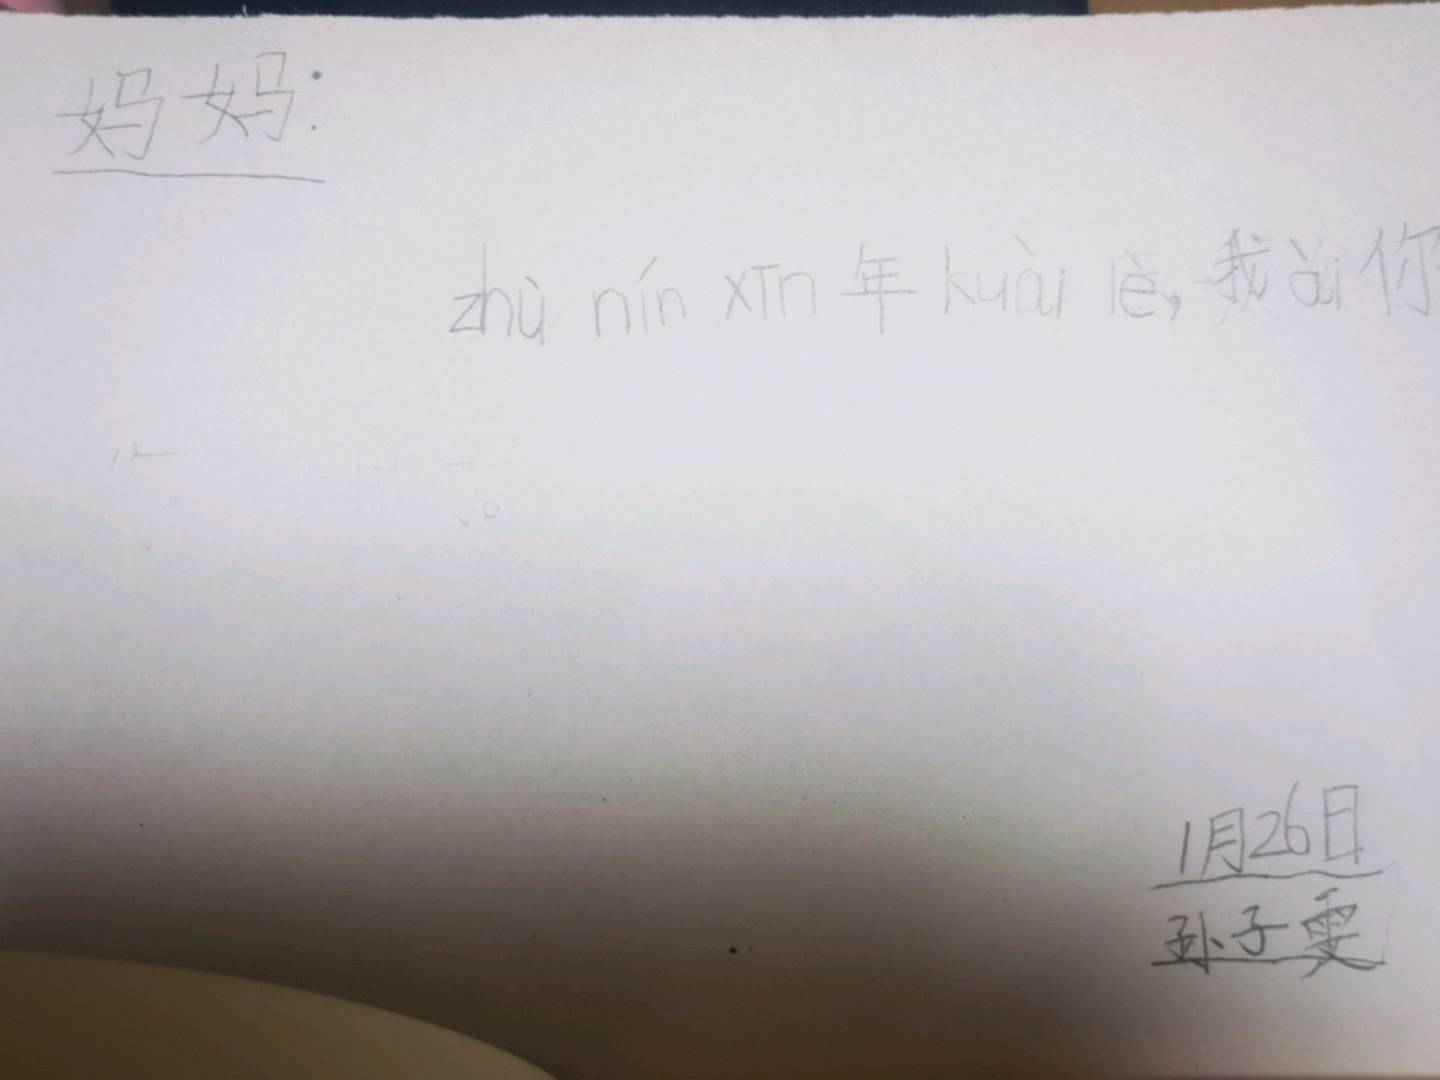 妈妈:
zhù nín xīn 年 kuài lè,我ài你
。
1月26日
孙子雯